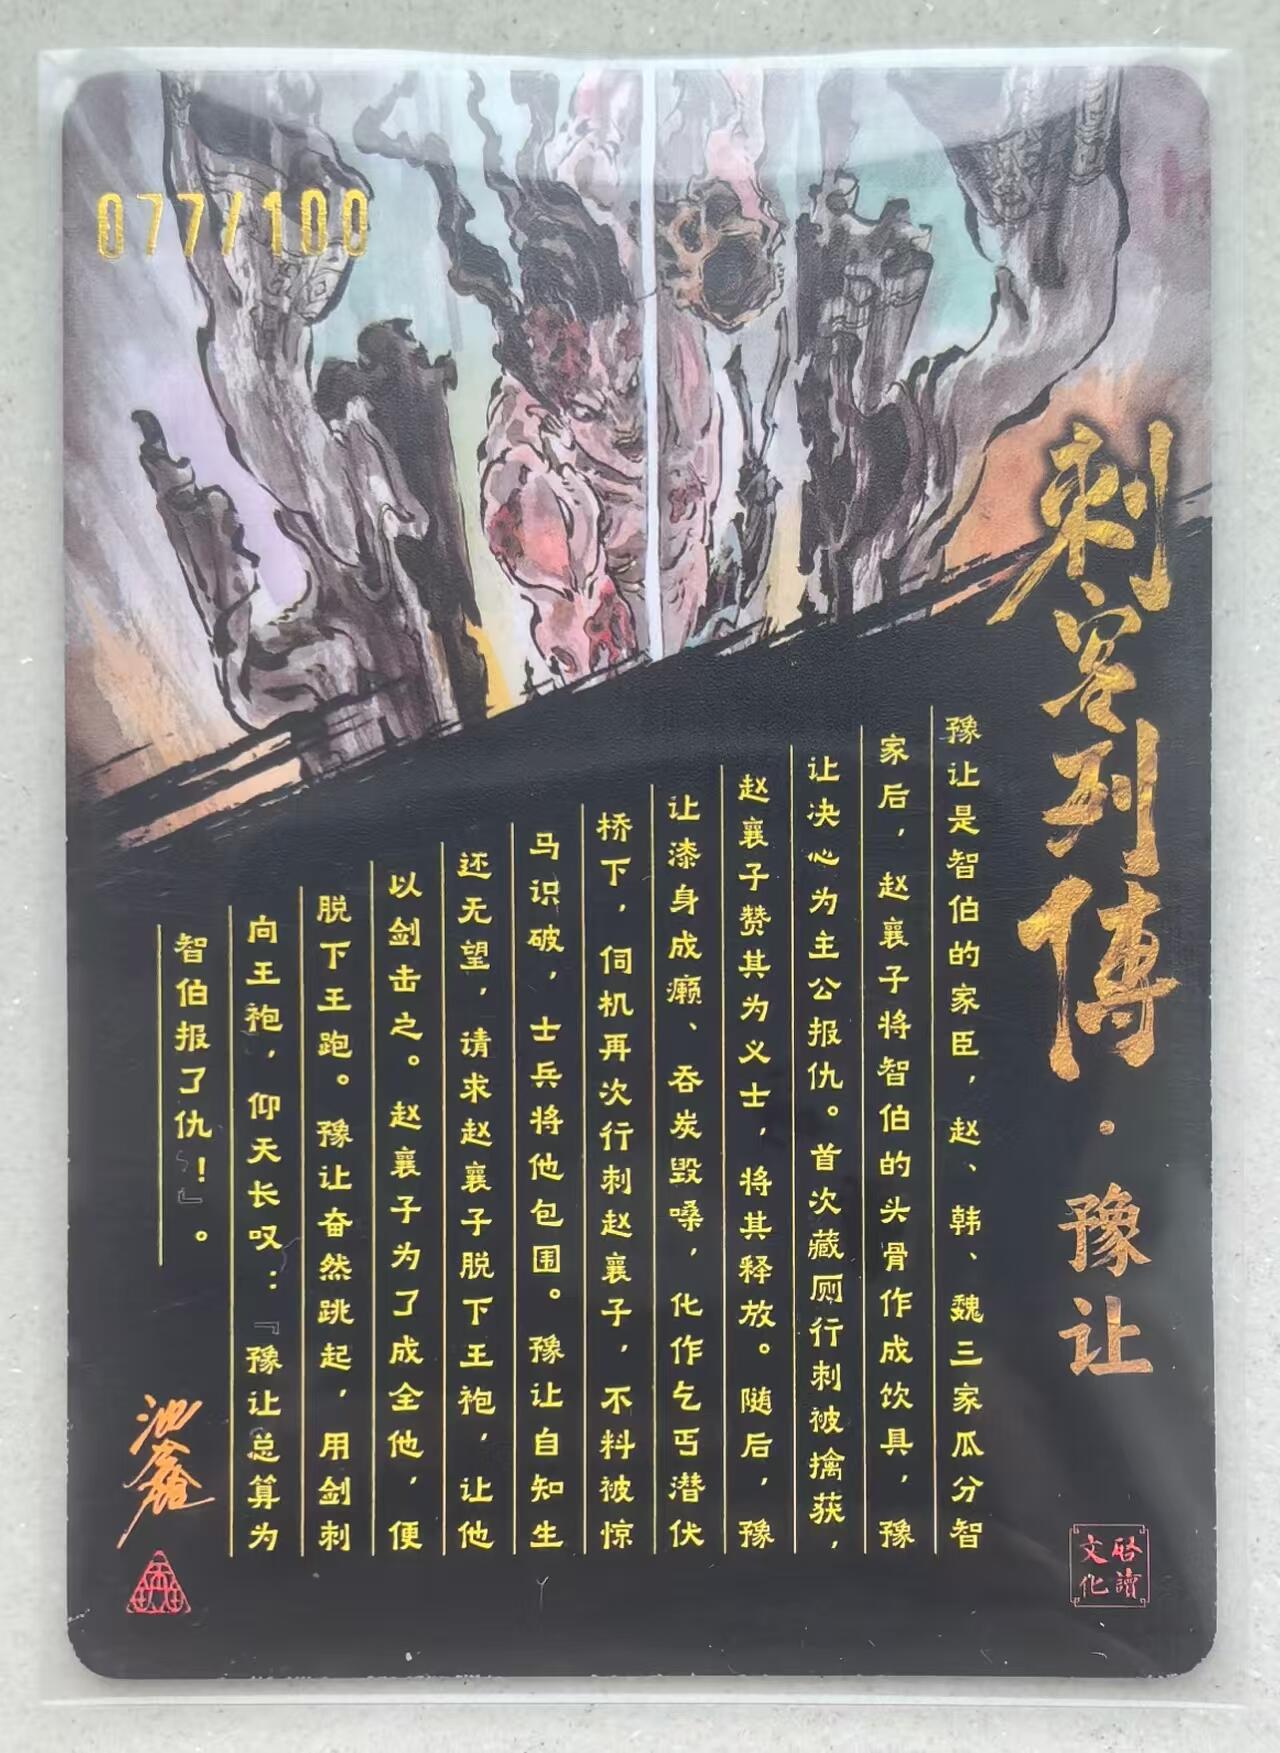 077/100
刺客列傳·豫让
豫让是智伯的家臣，赵、韩、魏三家瓜分智
家后，赵襄子将智伯的头骨作成饮具，豫
让决心为主公报仇。首次藏厕行刺被擒获，
赵襄子赞其为义士，将其释放。随后，豫
让漆身成癞、吞炭毁嗓，化作乞丐潜伏
桥下，伺机再次行刺赵襄子，不料被惊
马识破，士兵将他包围。豫让自知生
还无望，请求赵襄子脱下王袍，让他
以剑击之。赵襄子为了成全他，便
脱下王跑。豫让奋然跳起，用剑刺
向王袍，仰天长叹：『豫让总算为
智伯报了仇！』。
启讀
文化